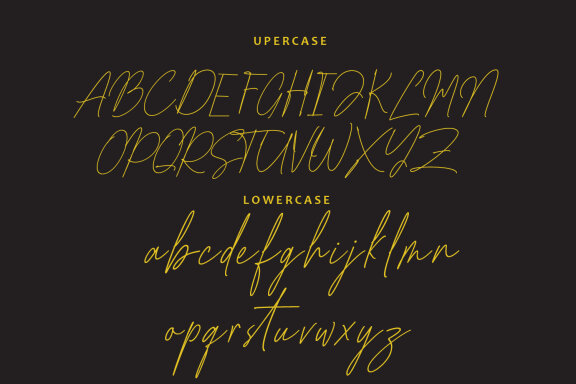 UPERCASE
ABCDEFGHIJKLMN
OPQRSTUVWXYZ
LOWERCASE
abcdefghijklmn
opqrstuvwxyz